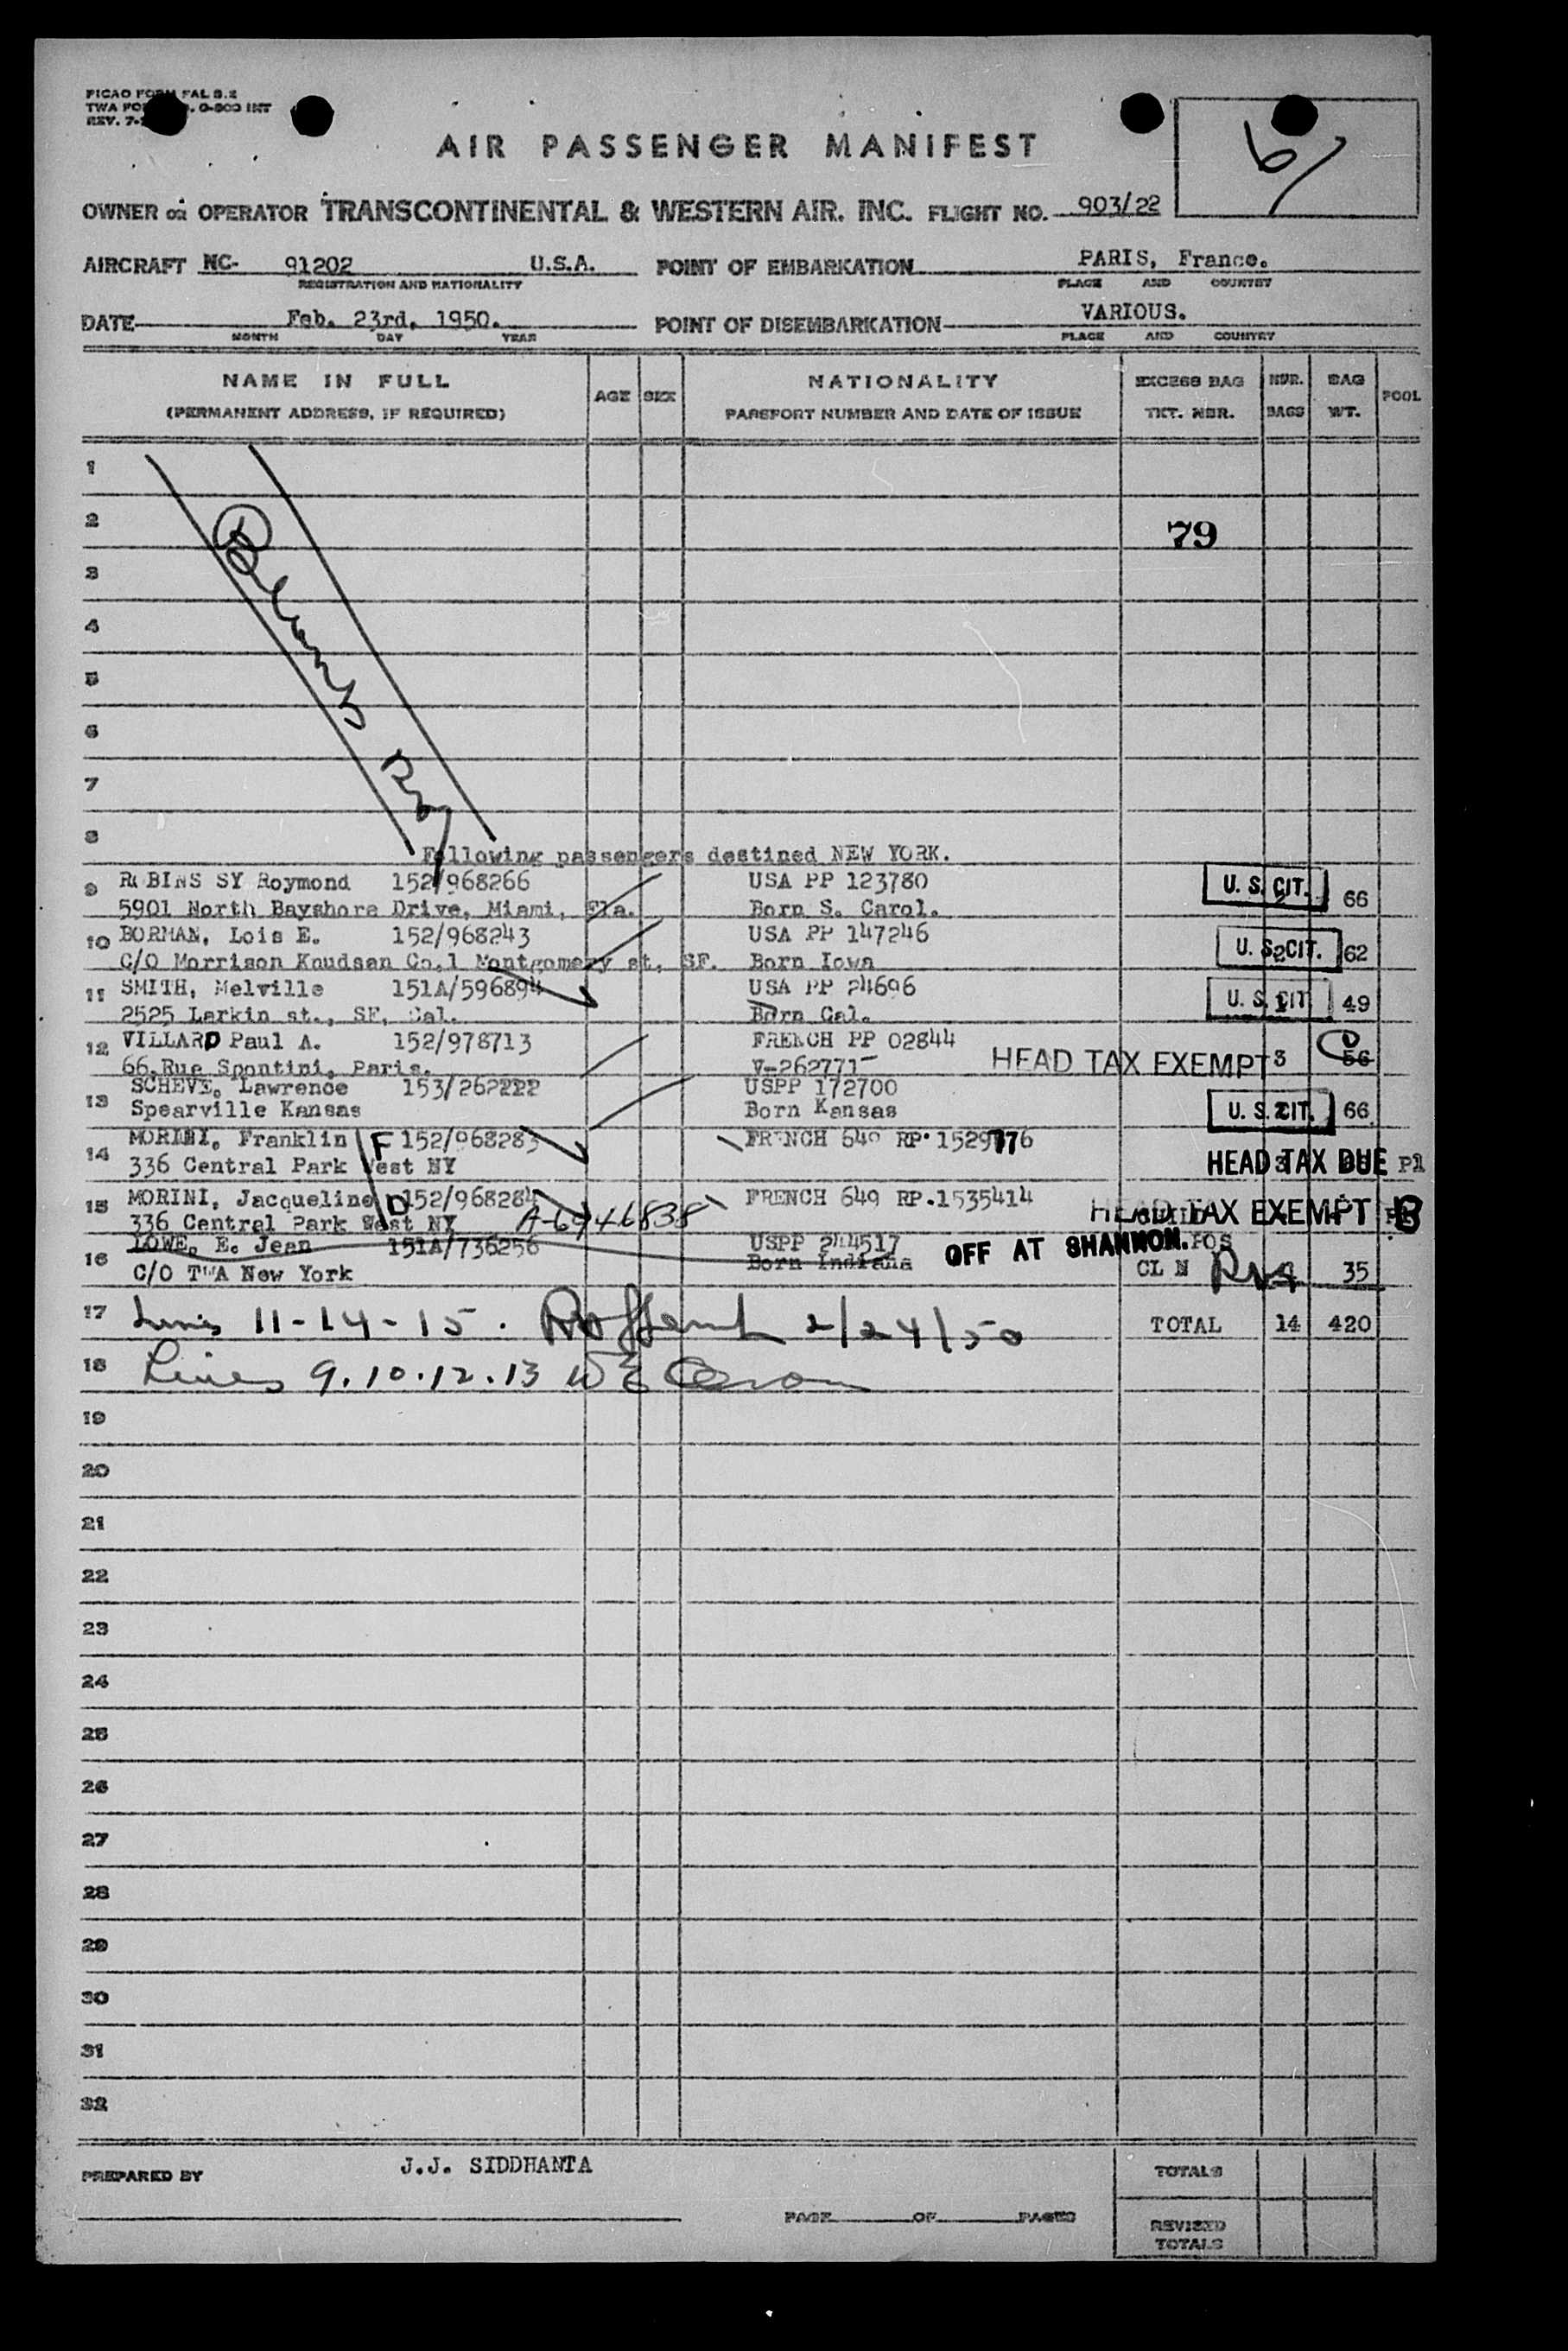 PICAO FORM FAL 2.2
TWA FO O-800 INT
REV. 7-
AIR PASSENGER MANIFEST
6/
OWNER or OPERATOR TRANSCONTINENTAL & WESTERN AIR. INC. FLIGHT NO. 903/22
AIRCRAFT NC- 91202 U.S.A. POINT OF EMBARKATION PARIS, France.
REGISTRATION AND NATIONALITY PLACE AND COUNTRY
DATE Feb. 23rd, 1950. POINT OF DISEMBARKATION VARIOUS.
MONTH DAY YEAR PLACE AND COUNTRY
NAME IN FULL AGE SEX NATIONALITY EXCESS BAG NBR. BAG POOL
(PERMANENT ADDRESS, IF REQUIRED) PASSPORT NUMBER AND DATE OF ISSUE TKT. NBR. BAGS WT.
1
2 79
3
4
5
6
7
8
Following passengers destined NEW YORK.
9 ROBINS SY Roymond 152/968266 USA PP 123780 U.S. CIT. 66
5901 North Bayshore Drive, Miami, Fla. Born S. Carol.
10 BORMAN, Lois E. 152/968243 USA PP 147246 U.S. CIT. 2 62
C/O Morrison Knudsen Co,1 Montgomery st, SF. Born Iowa
11 SMITH, Melville 151A/596894 USA PP 24696 U.S. CIT 1 49
2525 Larkin st., SF, Cal. Born Cal.
12 VILLARD Paul A. 152/978713 FRENCH PP 02844 HEAD TAX EXEMPT 3 56
66.Rue Spontini, Paris. V-262771
13 SCHEVE, Lawrence 153/262222 USPP 172700 U.S. CIT. 2 66
Spearville Kansas Born Kansas
14 MORINI, Franklin F 152/968283 FRENCH 649 RP. 1529776
336 Central Park West NY HEAD TAX DUE P1
15 MORINI, Jacqueline D 152/968284 FRENCH 649 RP.1535414 HEAD TAX EXEMPT B
336 Central Park West NY A-6946838
16 LOWE, E. Jean 151A/736256 USPP 244517 OFF AT SHANNON. POS
Born Indiana
C/O TWA New York CL N 35
17 Lines 11-14-15. 2/24/50 TOTAL 14 420
18 Lines 9.10.12.13
19
20
21
22
23
24
25
26
27
28
29
30
31
32
PREPARED BY J.J. SIDDHANTA TOTALS
PAGE OF PAGES REVISED
TOTALS